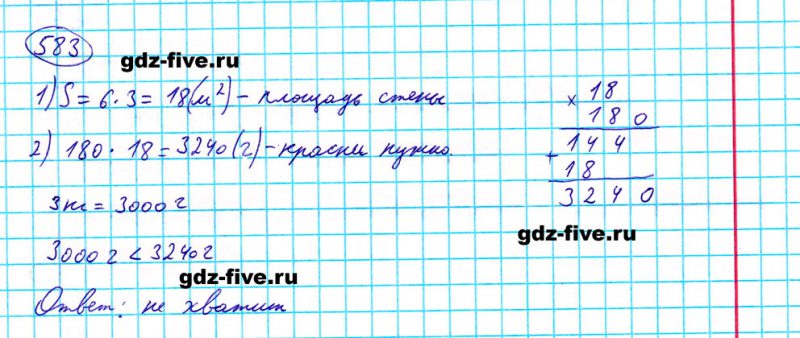 583
gdz-five.ru
1) S = 6 · 3 = 18 (м²) – площадь стены
2) 180 · 18 = 3240 (г) – краски нужно.
3 кг = 3000 г
3000 г < 3240 г
gdz-five.ru
Ответ: не хватит
× 18
180
+ 144
18
3240
gdz-five.ru